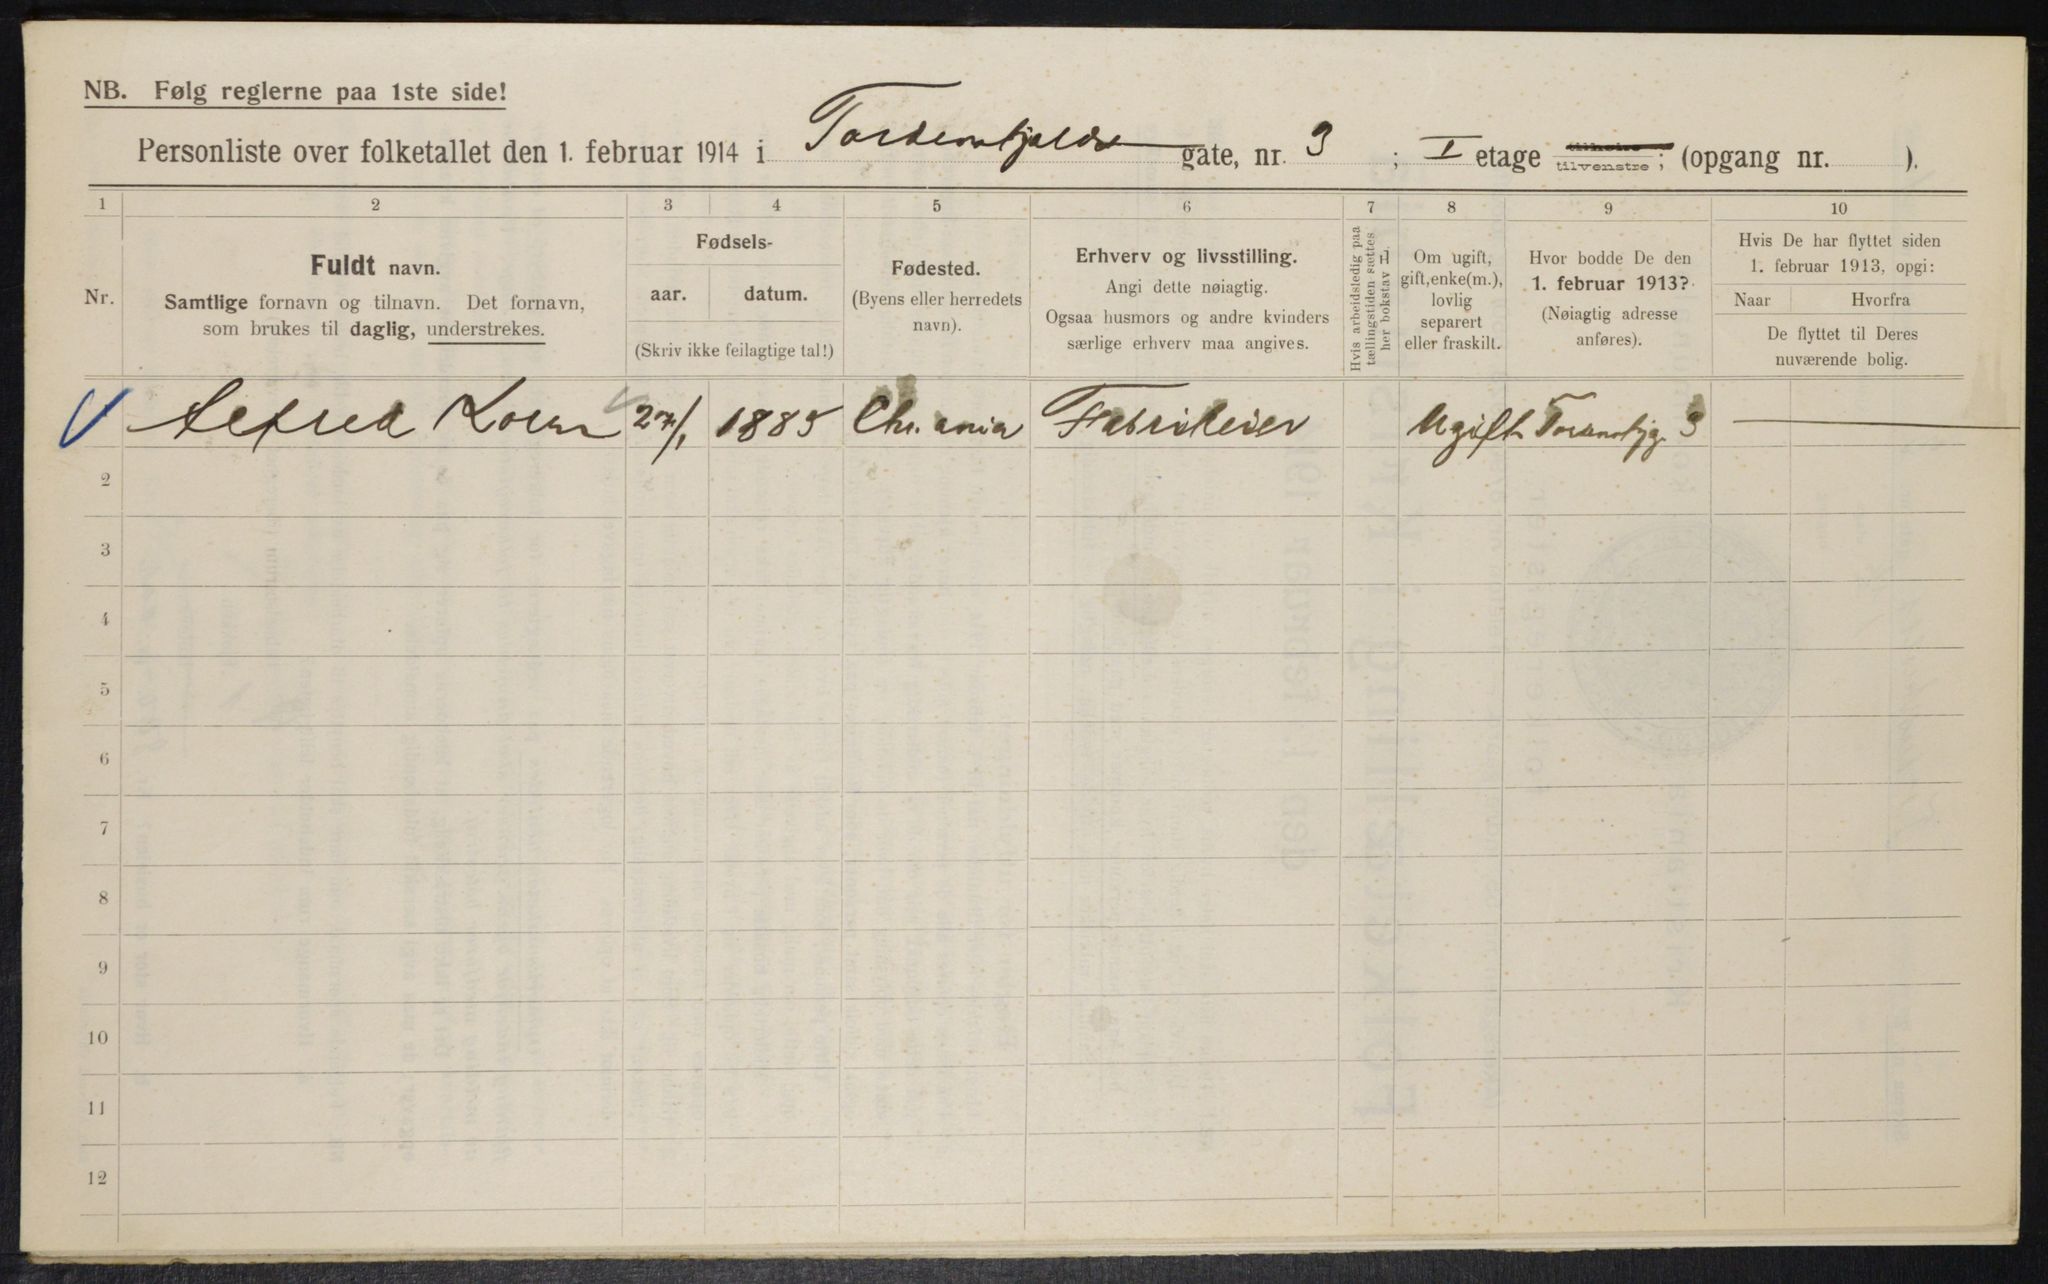 NB. Følg reglerne paa 1ste side!
Personliste over folketallet den 1. februar 1914 i Tordenskjolds gate, nr. 3 ; I etage tilhøire tilvenstre ; (opgang nr. ).
1 2 3 4 5 6 7 8 9 10
Nr.
Fuldt navn.
Samtlige fornavn og tilnavn. Det fornavn,
som brukes til daglig, understrekes.
Fødsels-
aar. datum.
(Skriv ikke feilagtige tal!)
Fødested.
(Byens eller herredets
navn).
Erhverv og livsstilling.
Angi dette nøiagtig.
Ogsaa husmors og andre kvinders
særlige erhverv maa angives.
Hvis arbeidsledig paa
tællingstiden sættes
her bokstav L.
Om ugift,
gift, enke(m.),
lovlig
separert
eller fraskilt.
Hvor bodde De den
1. februar 1913?
(Nøiagtig adresse
anføres).
Hvis De har flyttet siden
1. februar 1913, opgi:
Naar Hvorfra
De flyttet til Deres
nuværende bolig.
Alfred 27/1 1885 Chr.ania Ugift 3
2
3
4
5
6
7
8
9
10
11
12